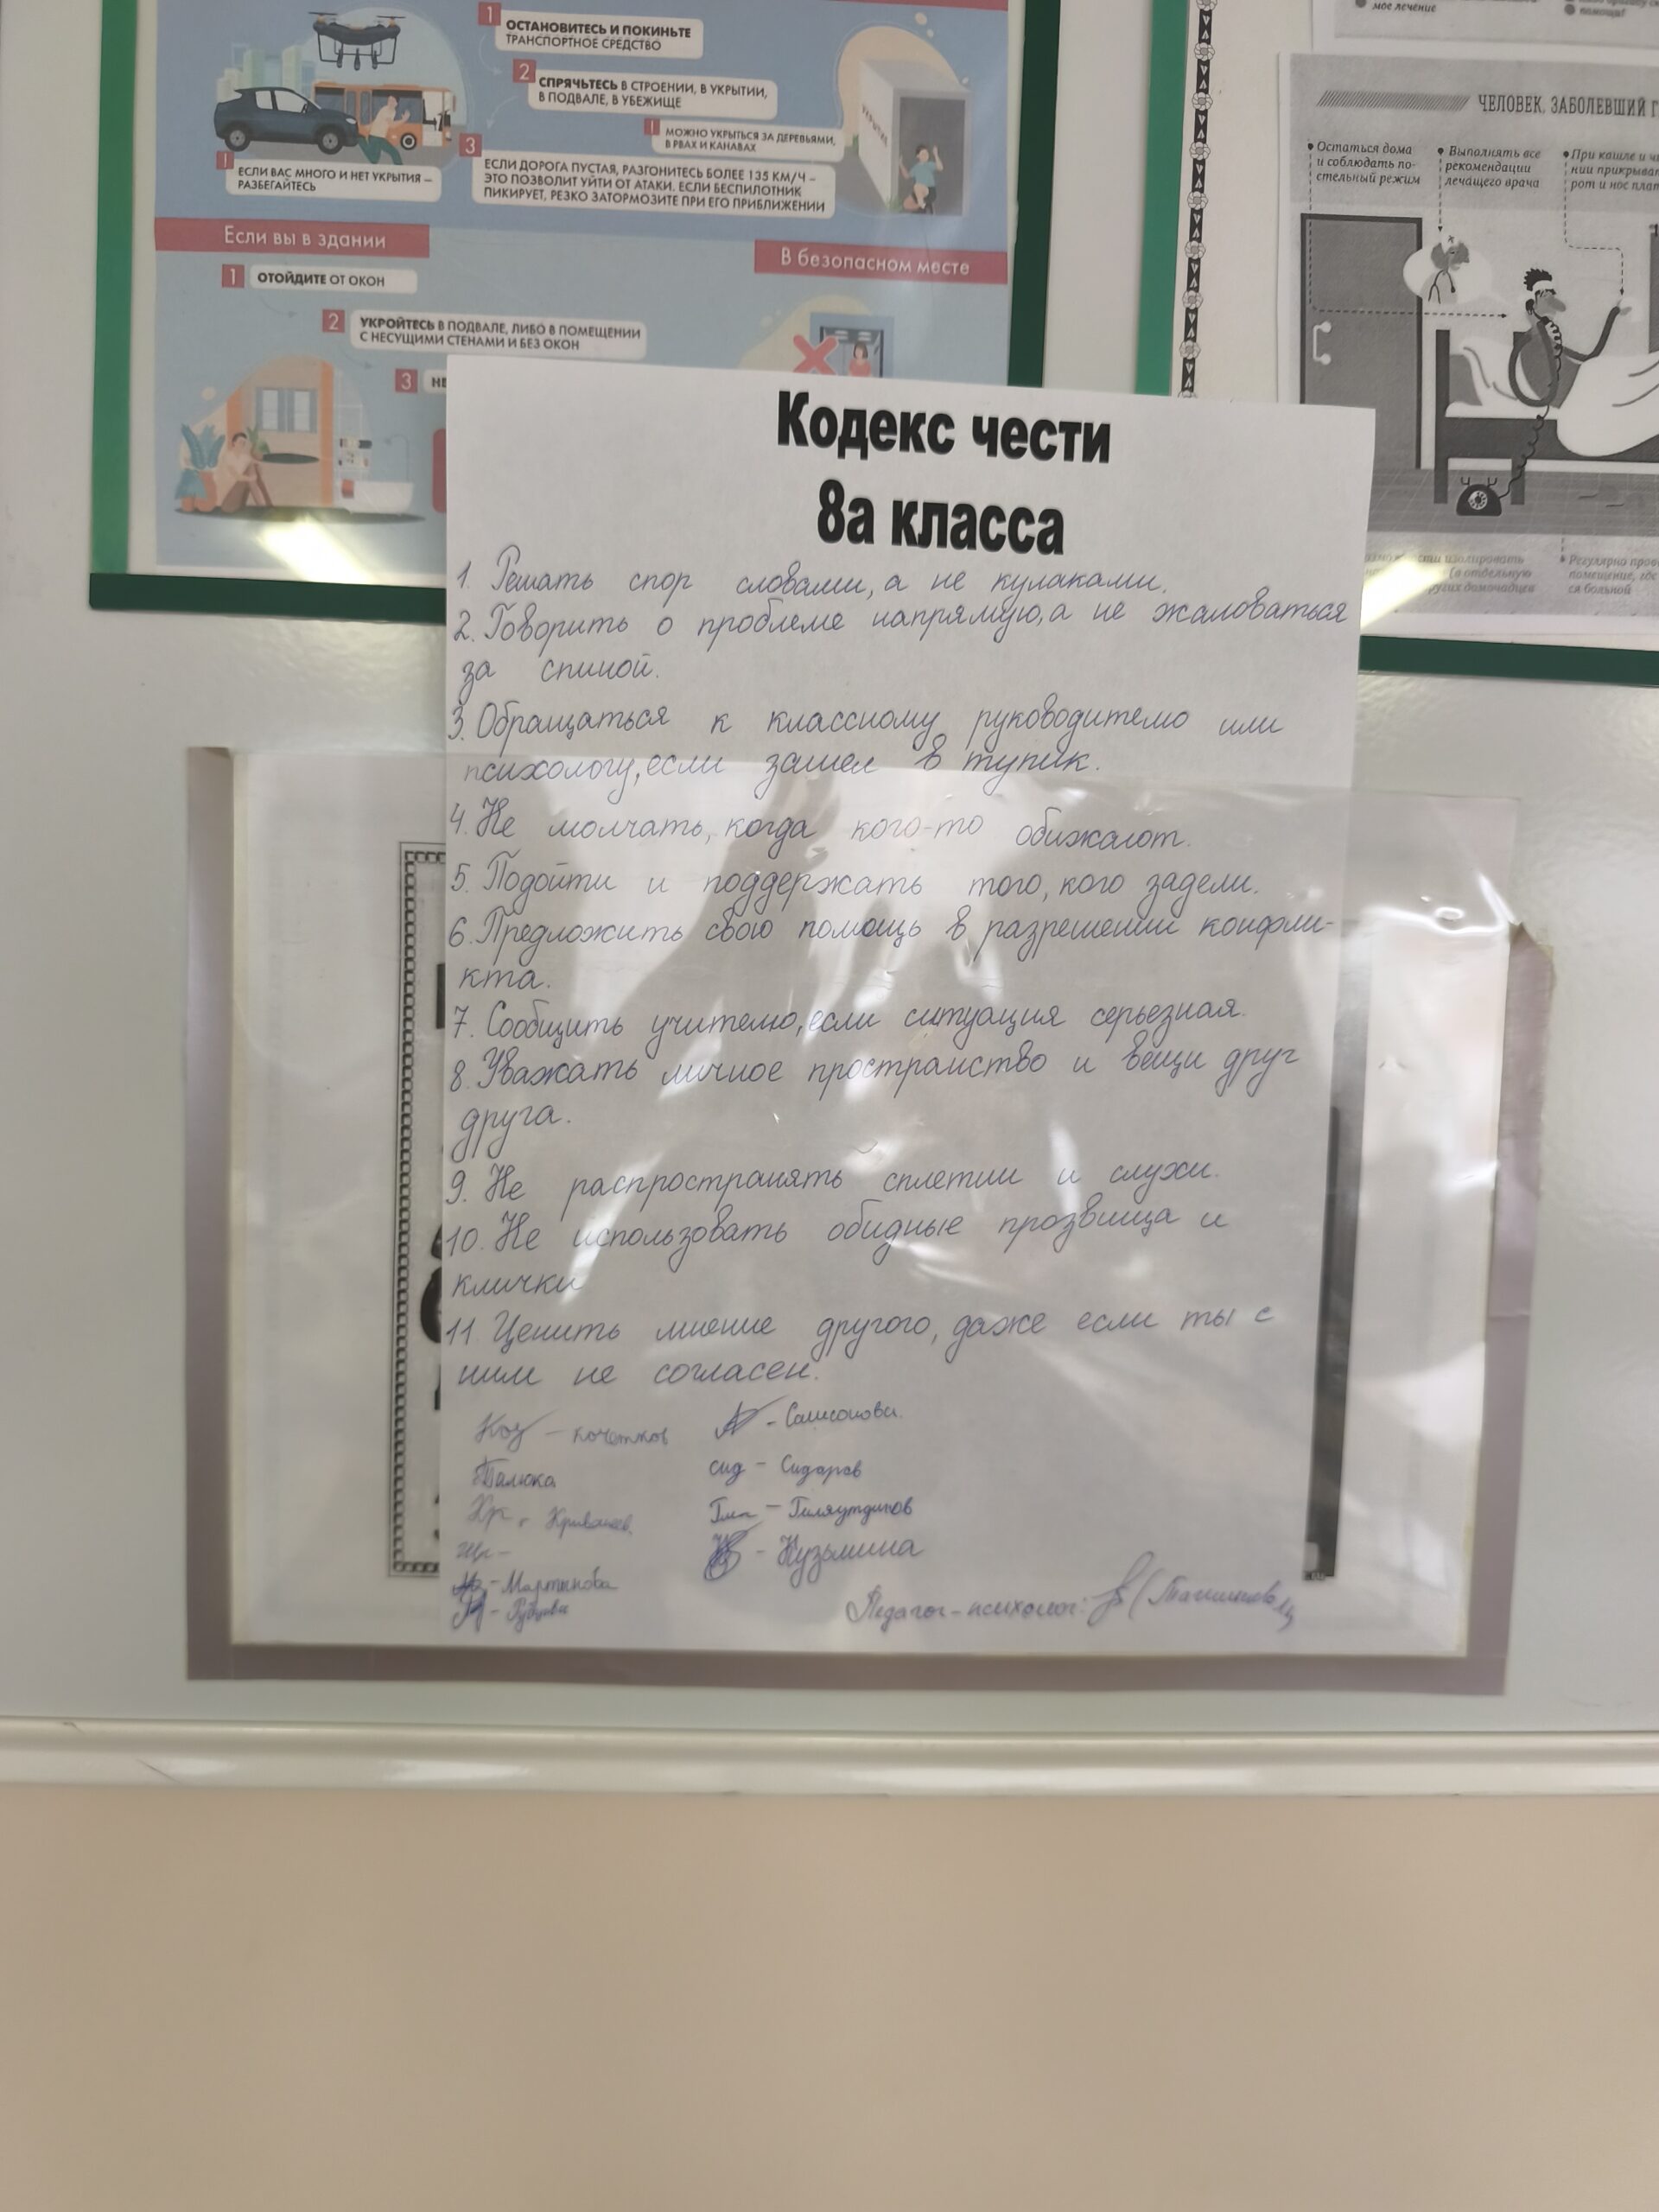 1
ОСТАНОВИТЕСЬ И ПОКИНЬТЕ
ТРАНСПОРТНОЕ СРЕДСТВО
2
СПРЯЧЬТЕСЬ В СТРОЕНИИ, В УКРЫТИИ,
В ПОДВАЛЕ, В УБЕЖИЩЕ
!
МОЖНО УКРЫТЬСЯ ЗА ДЕРЕВЬЯМИ,
В РВАХ И КАНАВАХ
УКРЫТИЕ
!
ЕСЛИ ВАС МНОГО И НЕТ УКРЫТИЯ –
РАЗБЕГАЙТЕСЬ
3
ЕСЛИ ДОРОГА ПУСТАЯ, РАЗГОНИТЕСЬ БОЛЕЕ 135 КМ/Ч –
ЭТО ПОЗВОЛИТ УЙТИ ОТ АТАКИ. ЕСЛИ БЕСПИЛОТНИК
ПИКИРУЕТ, РЕЗКО ЗАТОРМОЗИТЕ ПРИ ЕГО ПРИБЛИЖЕНИИ
Если вы в здании
В безопасном месте
1 ОТОЙДИТЕ ОТ ОКОН
2
УКРОЙТЕСЬ В ПОДВАЛЕ, ЛИБО В ПОМЕЩЕНИИ
С НЕСУЩИМИ СТЕНАМИ И БЕЗ ОКОН
3
мое лечение
помощи!
ЧЕЛОВЕК, ЗАБОЛЕВШИЙ Г
Остаться дома
и соблюдать по-
стельный режим
Выполнять все
рекомендации
лечащего врача
При кашле и
нии прикрыват
рот и нос
изолировать
(в отдельную
домочадцев
Регулярно
помещение, где
ся больной
Кодекс чести
8а класса
1. Решать спор словами, а не кулаками.
2. Говорить о проблеме напрямую, а не жаловаться
за спиной.
3. Обращаться к классному руководителю или
психологу, если зашел в тупик.
4. Не молчать, когда кого-то обижают.
5. Подойти и поддержать того, кого задели.
6. Предложить свою помощь в разрешении конфли-
кта.
7. Сообщить учителю, если ситуация серьезная.
8. Уважать личное пространство и вещи друг
друга.
9. Не распространять сплетни и слухи.
10. Не использовать обидные прозвища и
клички
11. Ценить мнение другого, даже если ты с
ним не согласен.
– Кочетков
Сид – Сидоров
– Гиляутдинов
– Кузьмина
– Мартынова
Педагог-психолог: